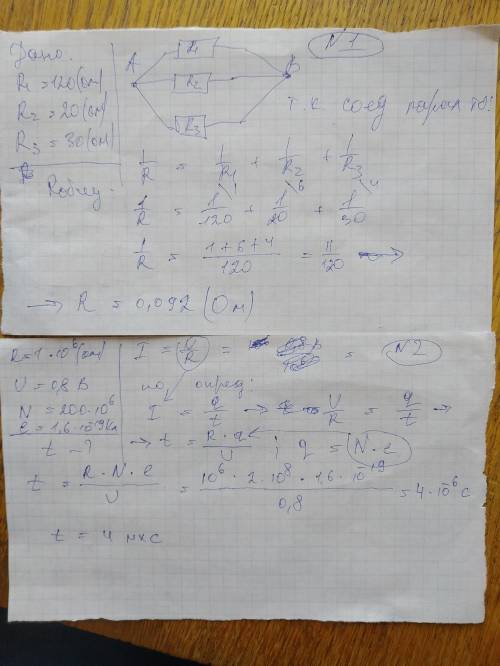 Дано:
R1 = 120 (Ом)
R2 = 20 (Ом)
R3 = 30 (Ом)
Rобщ -
A R1 R2 R3 B
N1
т.к соед паралл то:
1/R = 1/R1 + 1/R2 + 1/R3
1/R = 1/120 + 1/20 + 1/30
1/R = (1+6+4)/120 = 11/120 →
→ R = 0,092 (Ом)
R = 1·10^6 (Ом)
U = 0,8 В
N = 200·10^6
e = 1,6·10^-19 Кл
t - ?
I = U/R = =
N2
по опред:
I = q/t → U/R = q/t →
→ t = R·q/U ; q = N·e
t = R·N·e/U = 10^6 · 2·10^8 · 1,6·10^-19/0,8 = 4·10^-6 с
t = 4 мкс